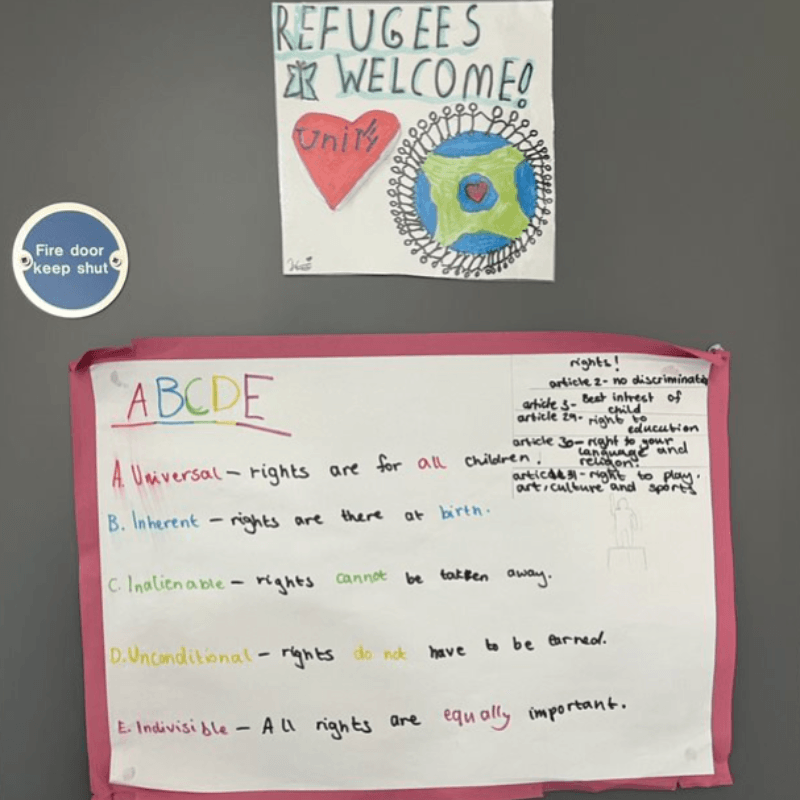 REFUGEES
WELCOME!
Unity
Fire door
keep shut
ABCDE
rights!
article 2- no discriminatio
article 3- Best intrest of
child
article 29- right to
educution
article 30- right to your
language and
religion!
article 31- right to play,
art, culture and sports
A. Universal – rights are for all children.
B. Inherent – rights are there at birth.
C. Inalienable – rights cannot be takken away.
D. Unconditional – rights do not have to be earned.
E. Indivisible – All rights are equally important.